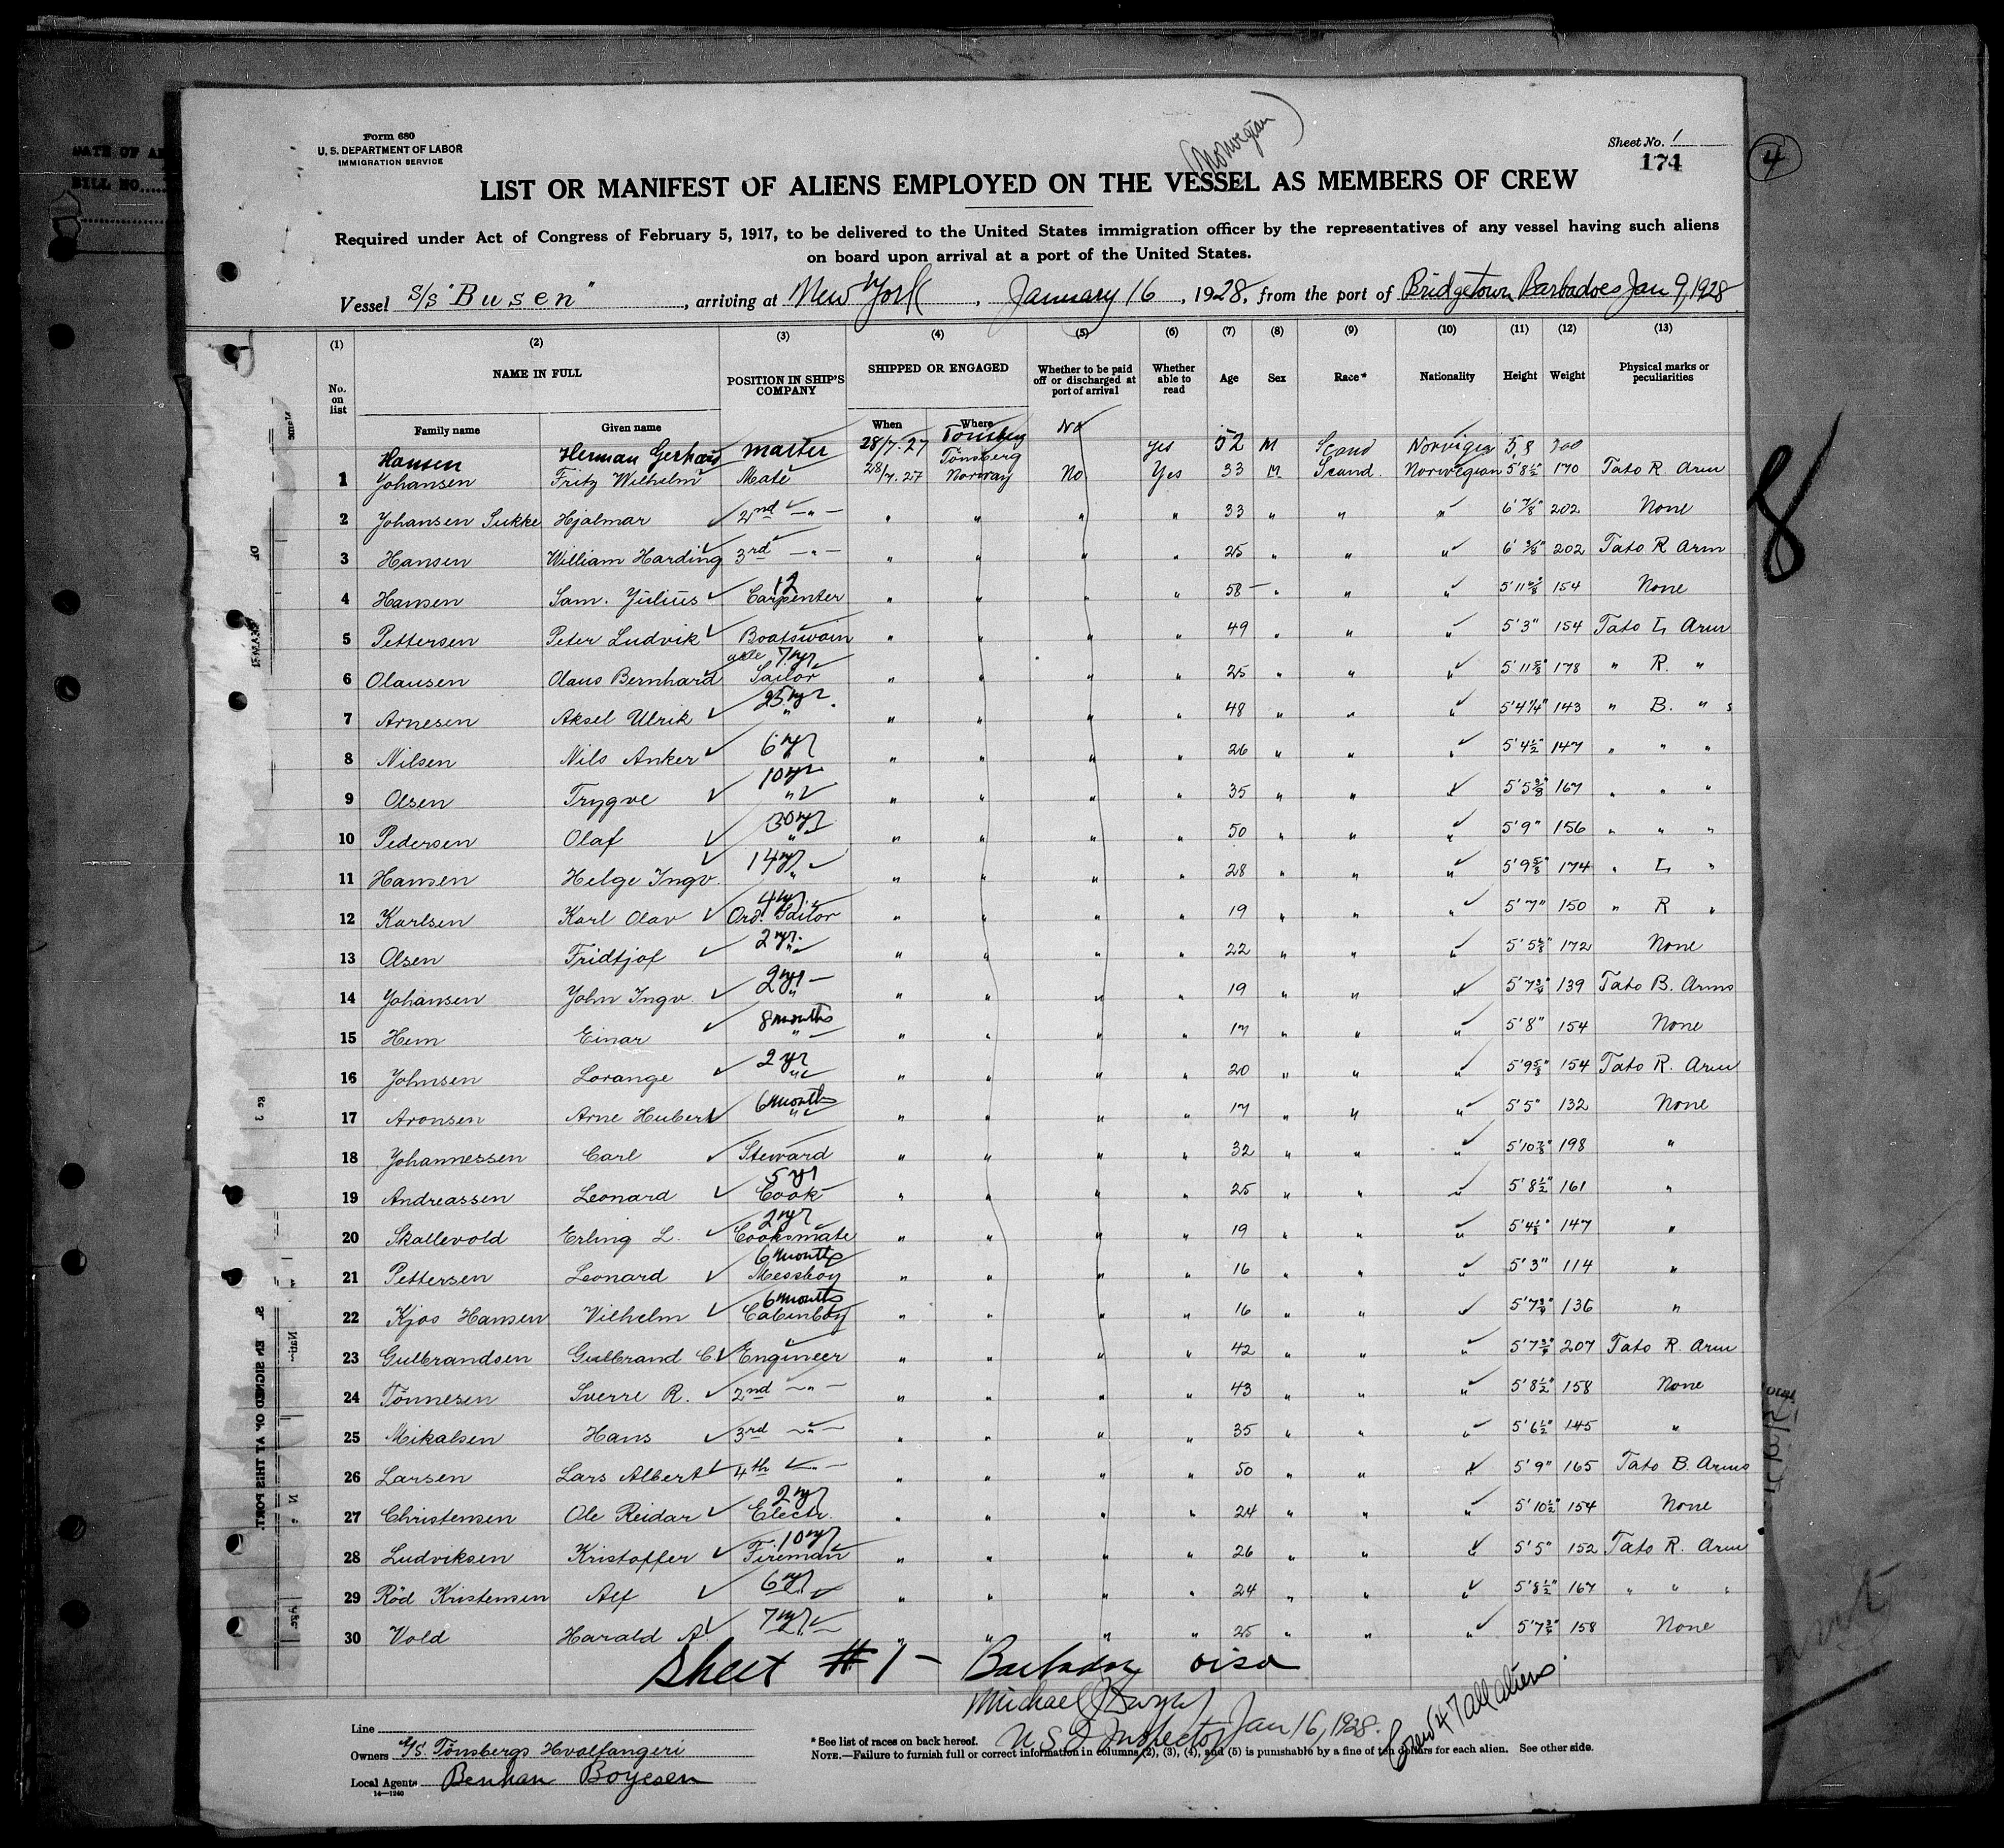 (Norwegian)
Form 680
U. S. DEPARTMENT OF LABOR
IMMIGRATION SERVICE
Sheet No. 1
174
4
LIST OR MANIFEST OF ALIENS EMPLOYED ON THE VESSEL AS MEMBERS OF CREW
Required under Act of Congress of February 5, 1917, to be delivered to the United States immigration officer by the representatives of any vessel having such aliens
on board upon arrival at a port of the United States.
Vessel S/S "Busen", arriving at New York, January 16, 1928, from the port of Bridgetown Barbadoes Jan 9, 1928
(1) (2) (3) (4) (5) (6) (7) (8) (9) (10) (11) (12) (13)
No. on list NAME IN FULL POSITION IN SHIP'S COMPANY SHIPPED OR ENGAGED Whether to be paid off or discharged at port of arrival Whether able to read Age Sex Race* Nationality Height Weight Physical marks or peculiarities
Family name Given name When Where
Hansen Herman Gerhard master 28/7.27 Tönsberg No Yes 52 M Scand Norwigia 5,8 200
1 Johansen Fritz Wilhelm Mate 28/7.27 Tönsberg Norway No Yes 33 M. Scand. Norwegian 5'8½" 170 Tato R. Arm
2 Johansen Sukke Hjalmar 2nd -"- " " " " 33 " " " 6'⅞" 202 None
3 Hansen William Harding 3rd -"- " " " " 25 " " " 6'⅜" 202 Tato R Arm
4 Hansen Sam. Julius 12 Carpenter " " " " 58 " " " 5'11⅜" 154 None
5 Pettersen Peter Ludvik Boatswain " " " " 49 " " " 5'3" 154 Tato L Arm
6 Olausen Olaus Bernhard able 7 yr Sailor " " " " 25 " " " 5'11⅝" 178 " R. "
7 Arnesen Aksel Ulrik 25 yr " " " " " 48 " " " 5'4¼" 143 " B. " s
8 Nilsen Nils Anker 6 yr " " " " 26 " " " 5'4½" 147 " " "
9 Olsen Trygve 10 yr " " " " " 35 " " " 5'5⅜" 167 " " "
10 Pedersen Olaf 30 yr " " " " " 50 " " " 5'9" 156 " " "
11 Hansen Helge Ingv. 14 yr " " " " " 28 " " " 5'9⅝" 174 " L "
12 Karlsen Karl Olav 4 yr. Ord. Sailor " " " " 19 " " " 5'7" 150 " R "
13 Olsen Fridtjof 2 yr. " " " " " 22 " " " 5'5⅝" 172 None
14 Johansen John Ingv. 2 yr " " " " " 19 " " " 5'7¾" 139 Tato B. Arms
15 Hem Einar 8 months " " " " " 17 " " " 5'8" 154 None
16 Johnsen Lorange 2 yr " " " " " 20 " " " 5'9⅝" 154 Tato R. Arm
17 Aronsen Arne Hubert 6 months " " " " " 17 " " " 5'5" 132 None
18 Johannessen Carl Steward " " " " 32 " " " 5'10⅞" 198 "
19 Andreassen Leonard 5 yr Cook " " " " 25 " " " 5'8½" 161 "
20 Skallevold Erling L. 2 yr Cooksmate " " " " 19 " " " 5'4⅛" 147 "
21 Pettersen Leonard 6 months Messboy " " " " 16 " " " 5'3" 114 "
22 Kjos Hansen Vilhelm 6 months Cabinboy " " " " 16 " " " 5'7¾" 136 "
23 Gulbrandsen Gulbrand C. Engineer " " " " 42 " " " 5'7¾" 207 Tato R. Arm
24 Tönnesen Sverre R. 2nd -"- " " " " 43 " " " 5'8½" 158 None
25 Mikalsen Hans 3rd -"- " " " " 35 " " " 5'6½" 145 "
26 Larsen Lars Albert 4th -"- " " " " 50 " " " 5'9" 165 Tato B. Arms
27 Christensen Ole Reidar 2 yr Electr. " " " " 24 " " " 5'10½" 154 None
28 Ludviksen Kristoffer 10 yr Fireman " " " " 26 " " " 5'5" 152 Tato R. Arm
29 Röd Kristensen Alf 6 yr " " " " " 24 " " " 5'8½" 167 " " "
30 Vold Harald A. 7 yr " " " " " 25 " " " 5'7¾" 158 None
Sheet #1 - Barbados visa
Michael
U S I Inspector Jan 16, 1928.
Crew 47 all aliens
Line
Owners A/S. Tönsbergs Hvalfangeri
Local Agents Benham Boyesen
14—1240
* See list of races on back hereof.
NOTE.—Failure to furnish full or correct information in columns (2), (3), (4), and (5) is punishable by a fine of ten dollars for each alien. See other side.
8
DATE OF AR
BILL NO.